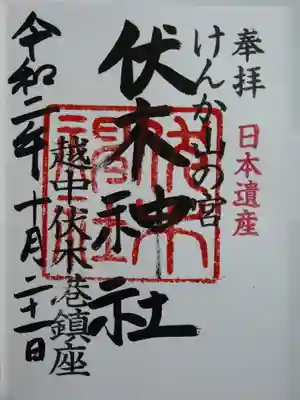 奉拝
日本遺産
けんか山の宮
伏木神社
越中伏木港鎮座
令和二年十月二十一日